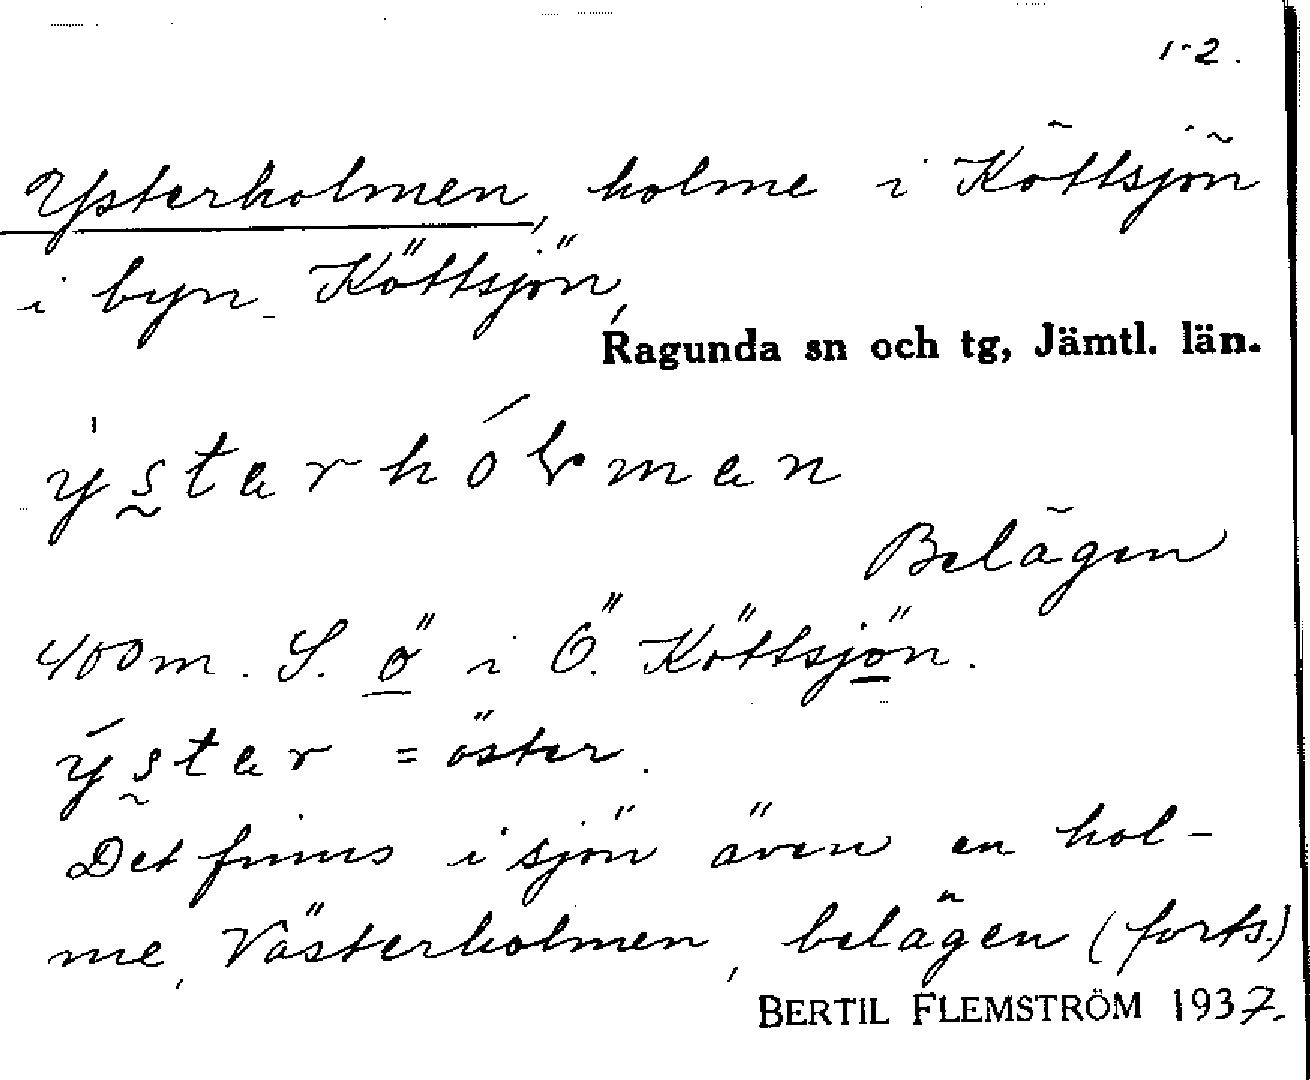 1-2.
Ysterholmen, holme i Köttsjön
i byn Köttsjön,
Ragunda sn och tg, Jämtl. län.
ystarhólman
Belägen
400 m. S. ö i Ö. Köttsjön.
ýstar = öster.
Det finns i sjön även en hol-
me, Västerholmen, belägen (forts.)
BERTIL FLEMSTRÖM 1937.